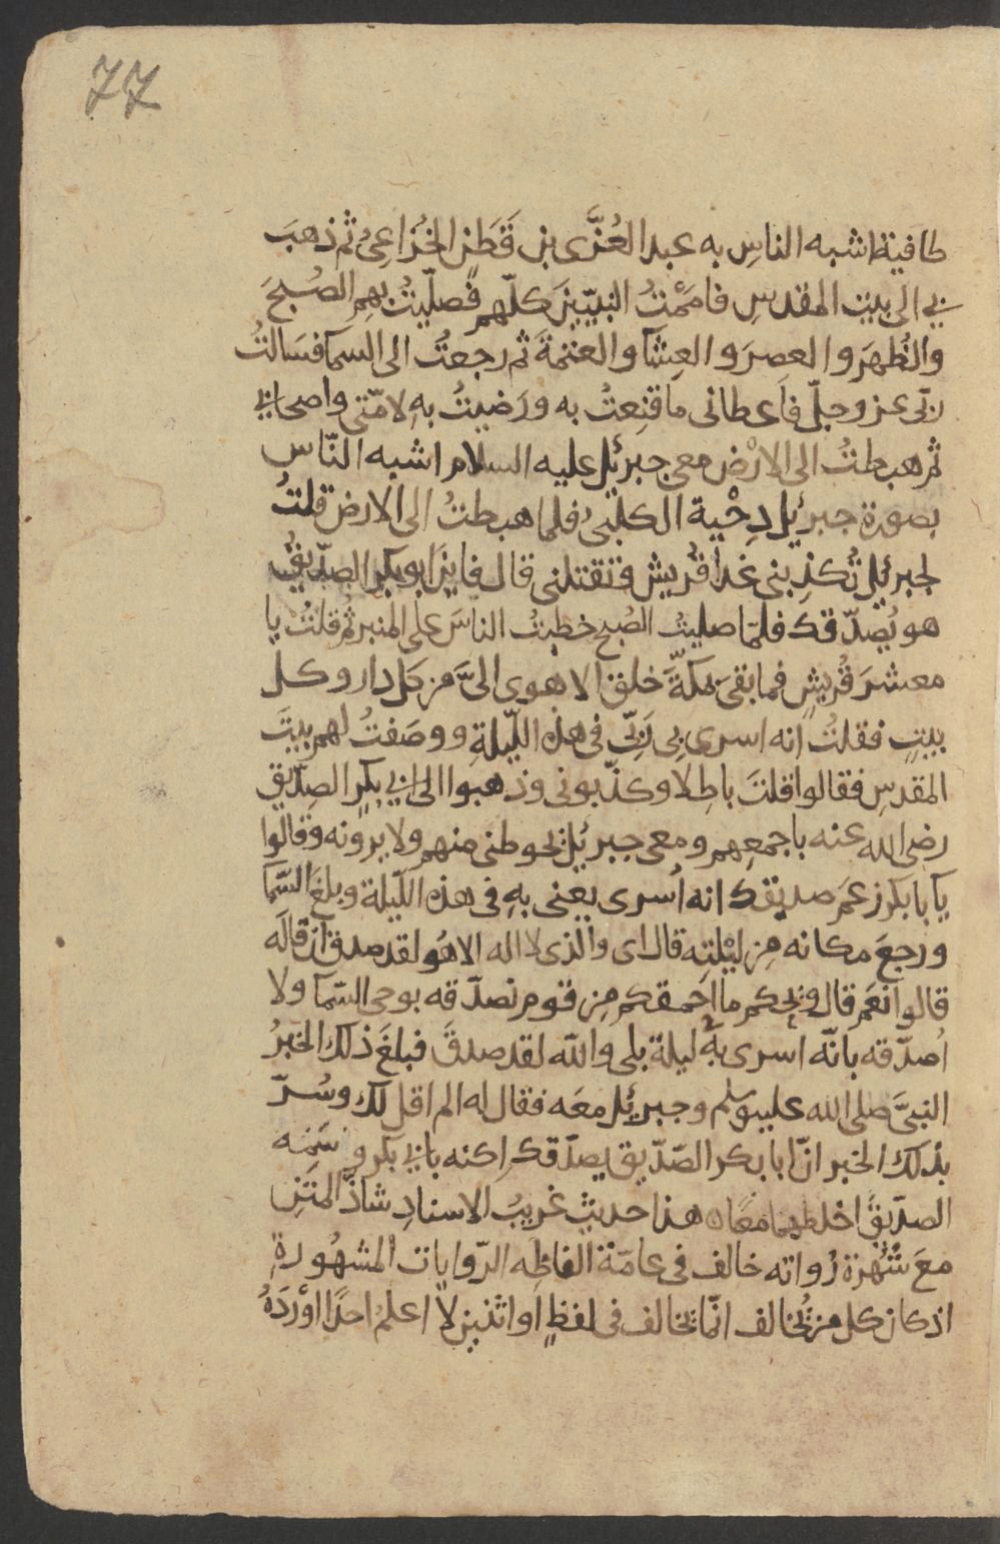 77
طافية اشبه الناسِ به عبد العُزَّى بن قَطَنٍ الخُزاعِىُّ ثم ذهبَ
بي الى بيت المقدسِ فاممْتُ النبيّينَ كلّهم فصلّيتُ بهم الصُبحَ
والظُهرَ والعصرَ والعِشآ والعتمةَ ثم رجعتُ الى السما فسَالتُ
ربّى عز وجلّ فاَعطانى ما قنِعتُ به ورَضيتُ بهِ لامّتى واصحابي
ثم هبطتُ الى الارْض معى جبرئيل عليه السلام اشبه النّاس
بصورة جبرئيل دِحْية الكلبىُّ فلما هبطتُ الى الارض قلتُ
لجبرئيل تُكذِبنى غدًا قُريش فتقتلنى قال فاين ابو بكر الصدّيق
هو يُصدّقك فلمّا صليتُ الصُبح خطبتُ الناسَ على المنبر ثم قلتُ يا
معشرَ قُريشٍ فما بقىَ بمكّةَ خلق الا هوى الىَّ من كل دار وكل
بيتٍ فقلتُ انه اسرى بى ربّى فى هذه اللّيلةِ ووصَفتُ لهم بيتَ
المقدسِ فقالوا قلتَ باطِلًا وكذّبونى وذهبوا الى ابي بكرٍ الصِدّيق
رضى الله عنه باجمعِهم ومعى جبرئيل يحوطنى منهم ولا يرونه وقالوا
يآ بابكر زعَمَ صديقك انه اُسرى يعنى بهِ فى هذه اللّيلة وبلغَ السّما
ورجعَ مكانه مِن ليْلتِه قال اى والذى لا اله الا هُو لقد صدق ان قالَه
قالوا نعَم قال ويحكم ما احمقكم مِن قوم نصدّقه بوحى السّما ولا
اُصدّقه بانّه اسرى به ليلة بلى والله لقد صدقَ فبلغَ ذلك الخبرُ
النبىَّ صلى الله عليه وسلم وجبرئيل معَه فقال له الم اقل لك وسُرّ
بذلك الخبر انّ ابا بكر الصّدّيق يصدّقك اكنه بابي بكر وسَمِّه
الصدّيقَ اخلطهما معًا ه هذا حديث غريبُ الاسنادِ شاذّ المتنِ
معَ شُهرة رُواته خالف فى عامّة الفاظِه الرّوايات المشهُورةِ
اذ كان كل من يُخالف انّما يخالف فى لفظٍ او اثنين لا اعلمُ احدًا اوْردَهُ